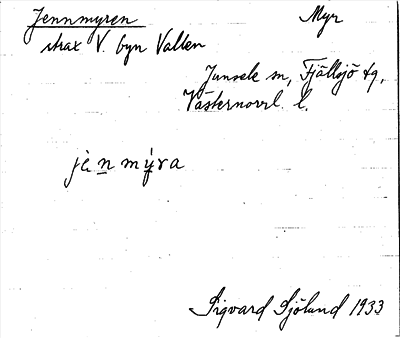 Jennmyren Myr
strax V. byn Vallen
Junsele sn, Fjällsjö tg,
Västernorrl. l.
jè̀n mỳra
Sigvard Sjölund 1933